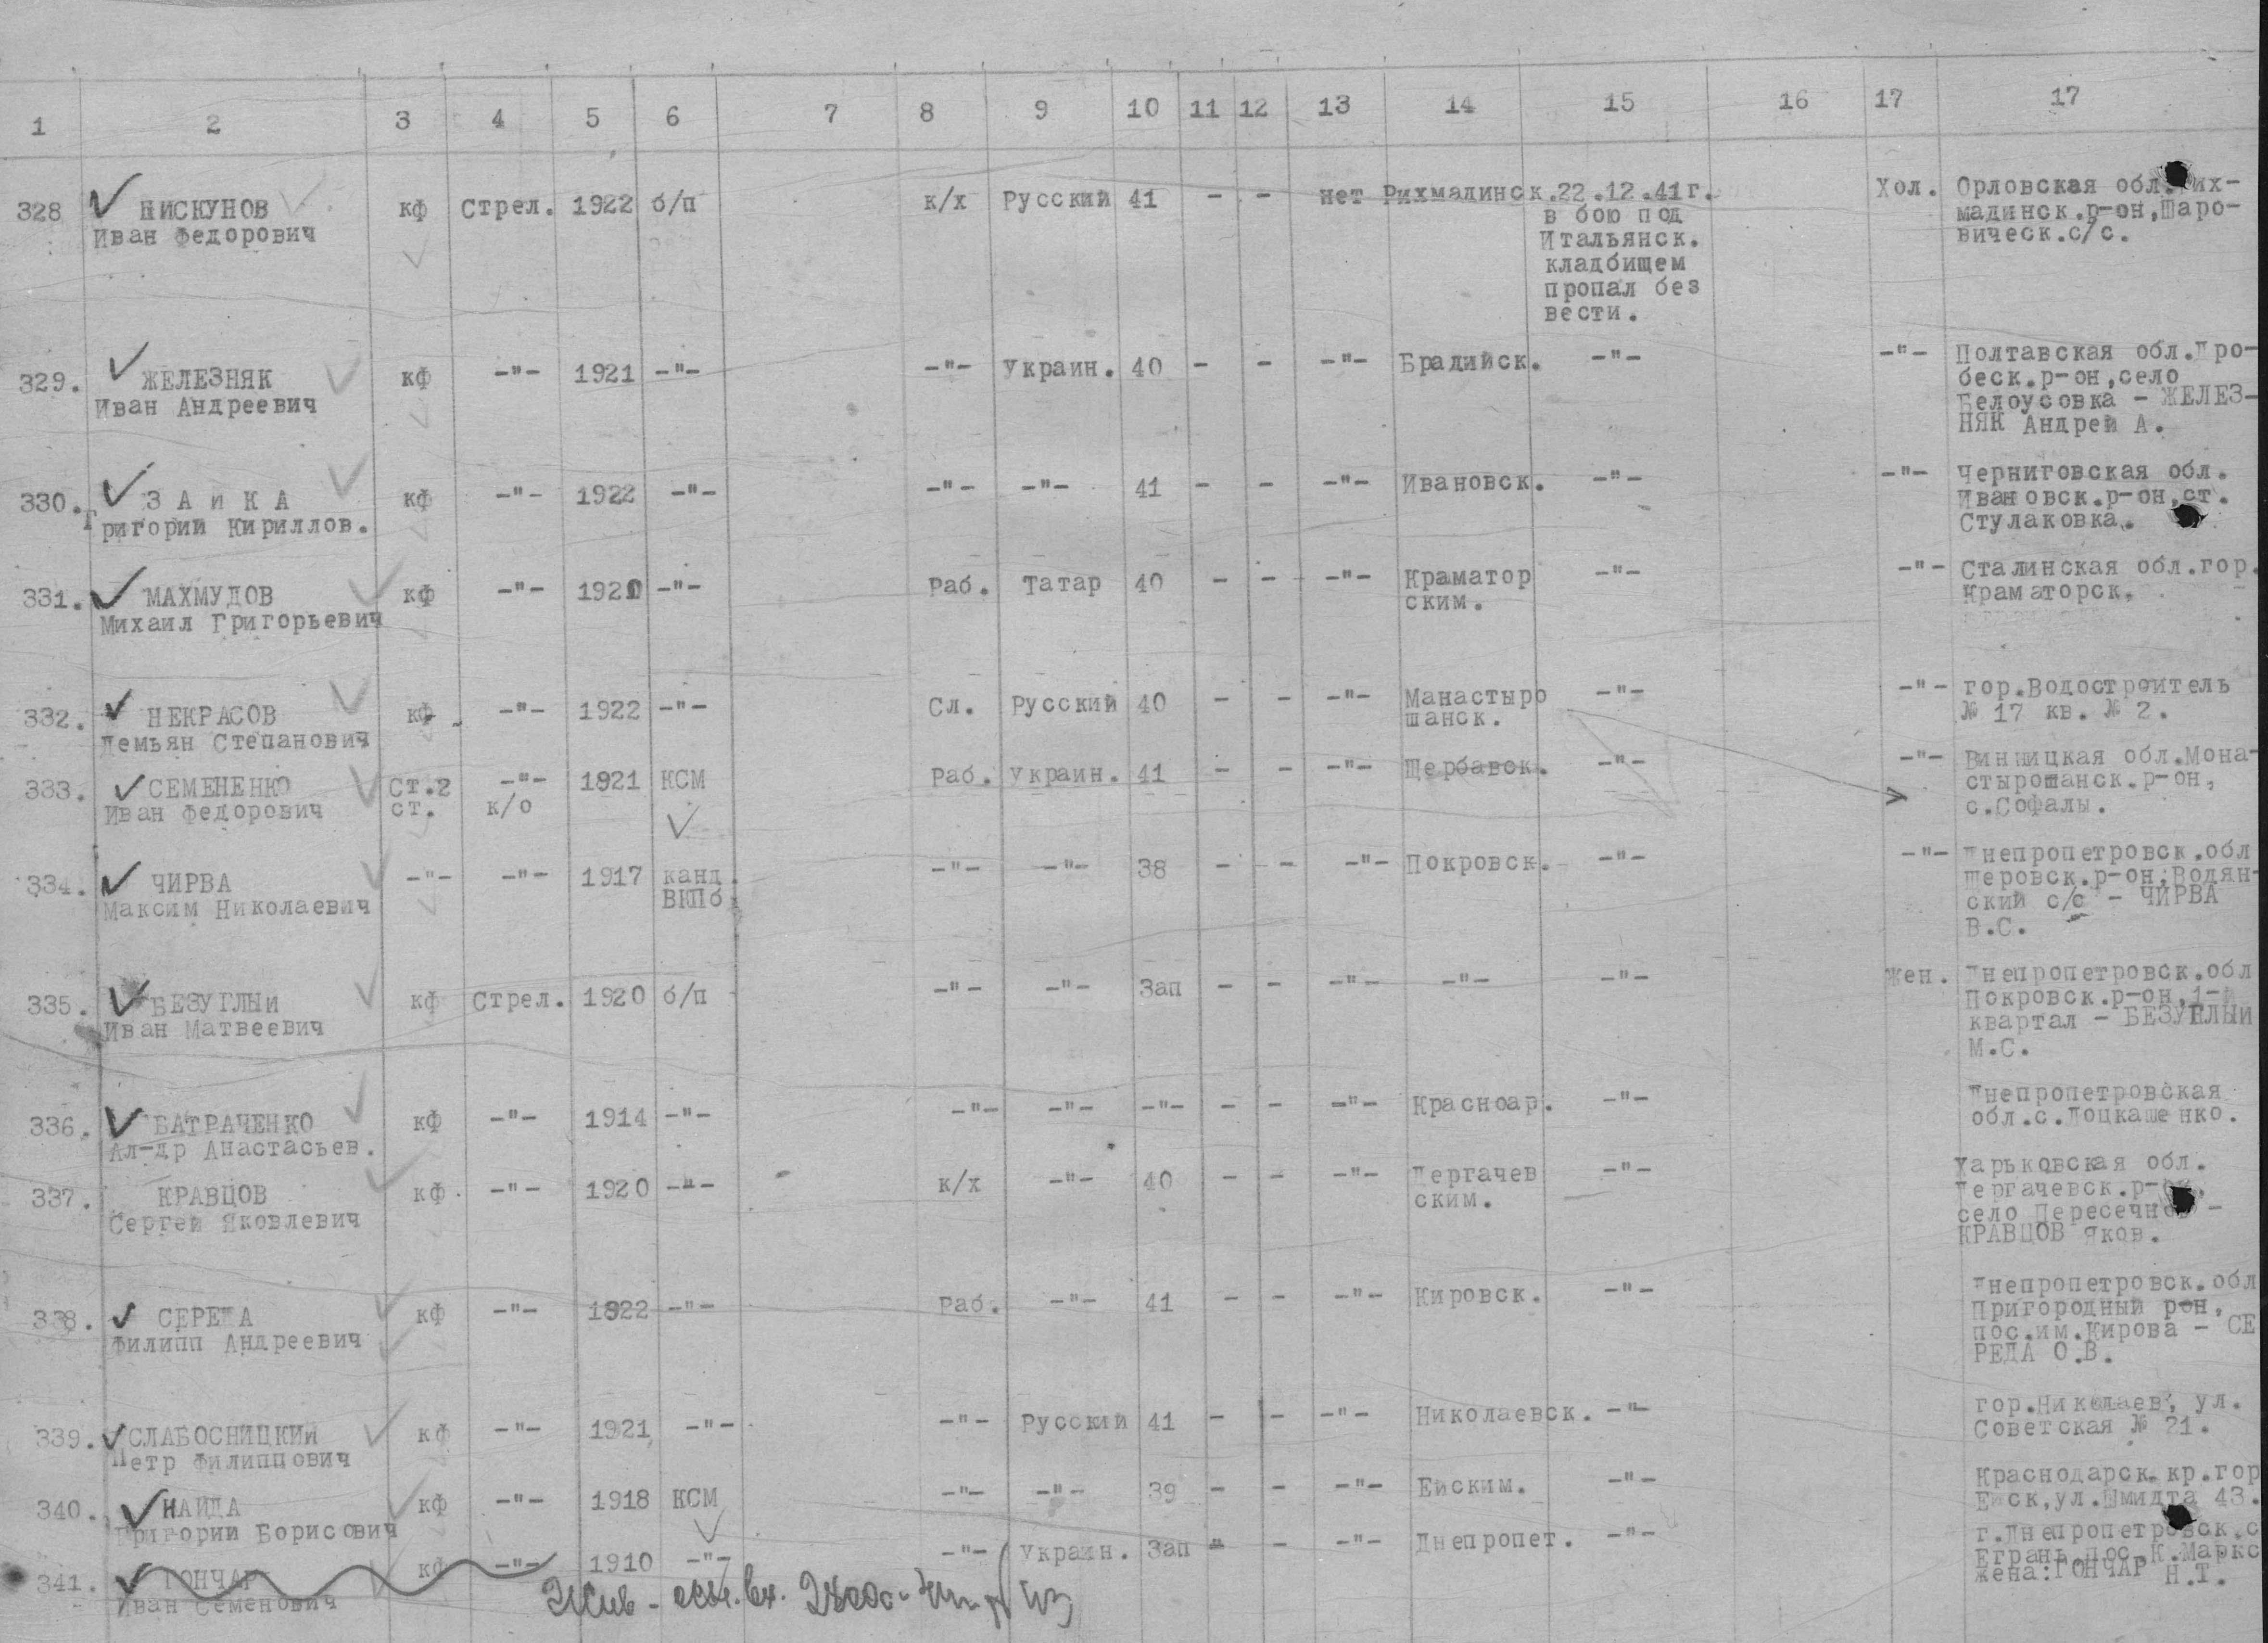 1 2 3 4 5 6 7 8 9 10 11 12 13 14 15 16 17 17
328 ПИСКУНОВ кф Стрел. 1922 б/п к/х Русский 41 - - нет Рихмадинск.22.12.41г. Хол. Орловская обл.Рих-
Иван Федорович в бою под мадинск.р-он,Шаро-
Итальянск. вическ.с/с.
кладбищем
пропал без
вести.
329. ЖЕЛЕЗНЯК кф -"- 1921 -"- -"- Украин. 40 - - -"- Брадийск. -"- -"- Полтавская обл.Дро-
Иван Андреевич беск.р-он,село
Белоусовка - ЖЕЛЕЗ-
НЯК Андрей А.
330. З А И К А кф -"- 1922 -"- -"- -"- 41 - - -"- Ивановск. -"- -"- Черниговская обл.
Григорий Кириллов. Ивановск.р-он,ст.
Стулаковка.
331. МАХМУДОВ кф -"- 1920 -"- Раб. Татар 40 - - -"- Краматор -"- -"- Сталинская обл.гор.
Михаил Григорьевич ским. Краматорск.
332. НЕКРАСОВ кф -"- 1922 -"- Сл. Русский 40 - - -"- Манастыро -"- -"- гор.Водостроитель
Демьян Степанович шанск. № 17 кв. № 2.
333. СЕМЕНЕНКО Ст.2 -"- 1921 КСМ Раб. Украин. 41 - - -"- Щербавск. -"- -"- Винницкая обл.Мона-
Иван Федорович ст. к/о стырошанск.р-он,
с.Софалы.
334. ЧИРВА -"- -"- 1917 канд. -"- -"- 38 - - -"- Покровск. -"- -"- Днепропетровск.обл
Максим Николаевич ВКПб. Щеровск.р-он,Водян-
ский с/с - ЧИРВА
В.С.
335. БЕЗУГЛЫЙ кф Стрел. 1920 б/п -"- -"- Зап - - -"- -"- -"- Жен. Днепропетровск.обл
Иван Матвеевич Покровск.р-он,1-й
квартал - БЕЗУГЛЫЙ
М.С.
336. БАТРАЧЕНКО кф -"- 1914 -"- -"- -"- -"- - - -"- Красноар. -"- Днепропетровская
Ал-др Анастасьев. обл.с.Лоцкашенко.
337. КРАВЦОВ кф -"- 1920 -"- к/х -"- 40 - - -"- Дергачев -"- Харьковская обл.
Сергей Яковлевич ским. Дергачевск.р-он,
село Пересечнов -
КРАВЦОВ Яков.
338. СЕРЕДА кф -"- 1922 -"- Раб. -"- 41 - - -"- Кировск. -"- Днепропетровск.обл
Филипп Андреевич Пригородный рон,
пос.им.Кирова - СЕ
РЕДА О.В.
339. СЛАБОСНИЦКИЙ кф -"- 1921 -"- -"- Русский 41 - - -"- Николаевск. -"- гор.Николаев, ул.
Петр Филиппович Советская № 21.
340. НАЙДА кф -"- 1918 КСМ -"- -"- 39 - - -"- Ейским. -"- Краснодарск.кр.гор
Григорий Борисович Ейск,ул.Шмидта 43.
341. ГОНЧАР кф -"- 1910 -"- -"- Украин. Зап - - -"- Днепропет. -"- г.Днепропетровск.с
Иван Семенович пос.К.Маркс
жена:ГОНЧАР Н.Т.
Жив -